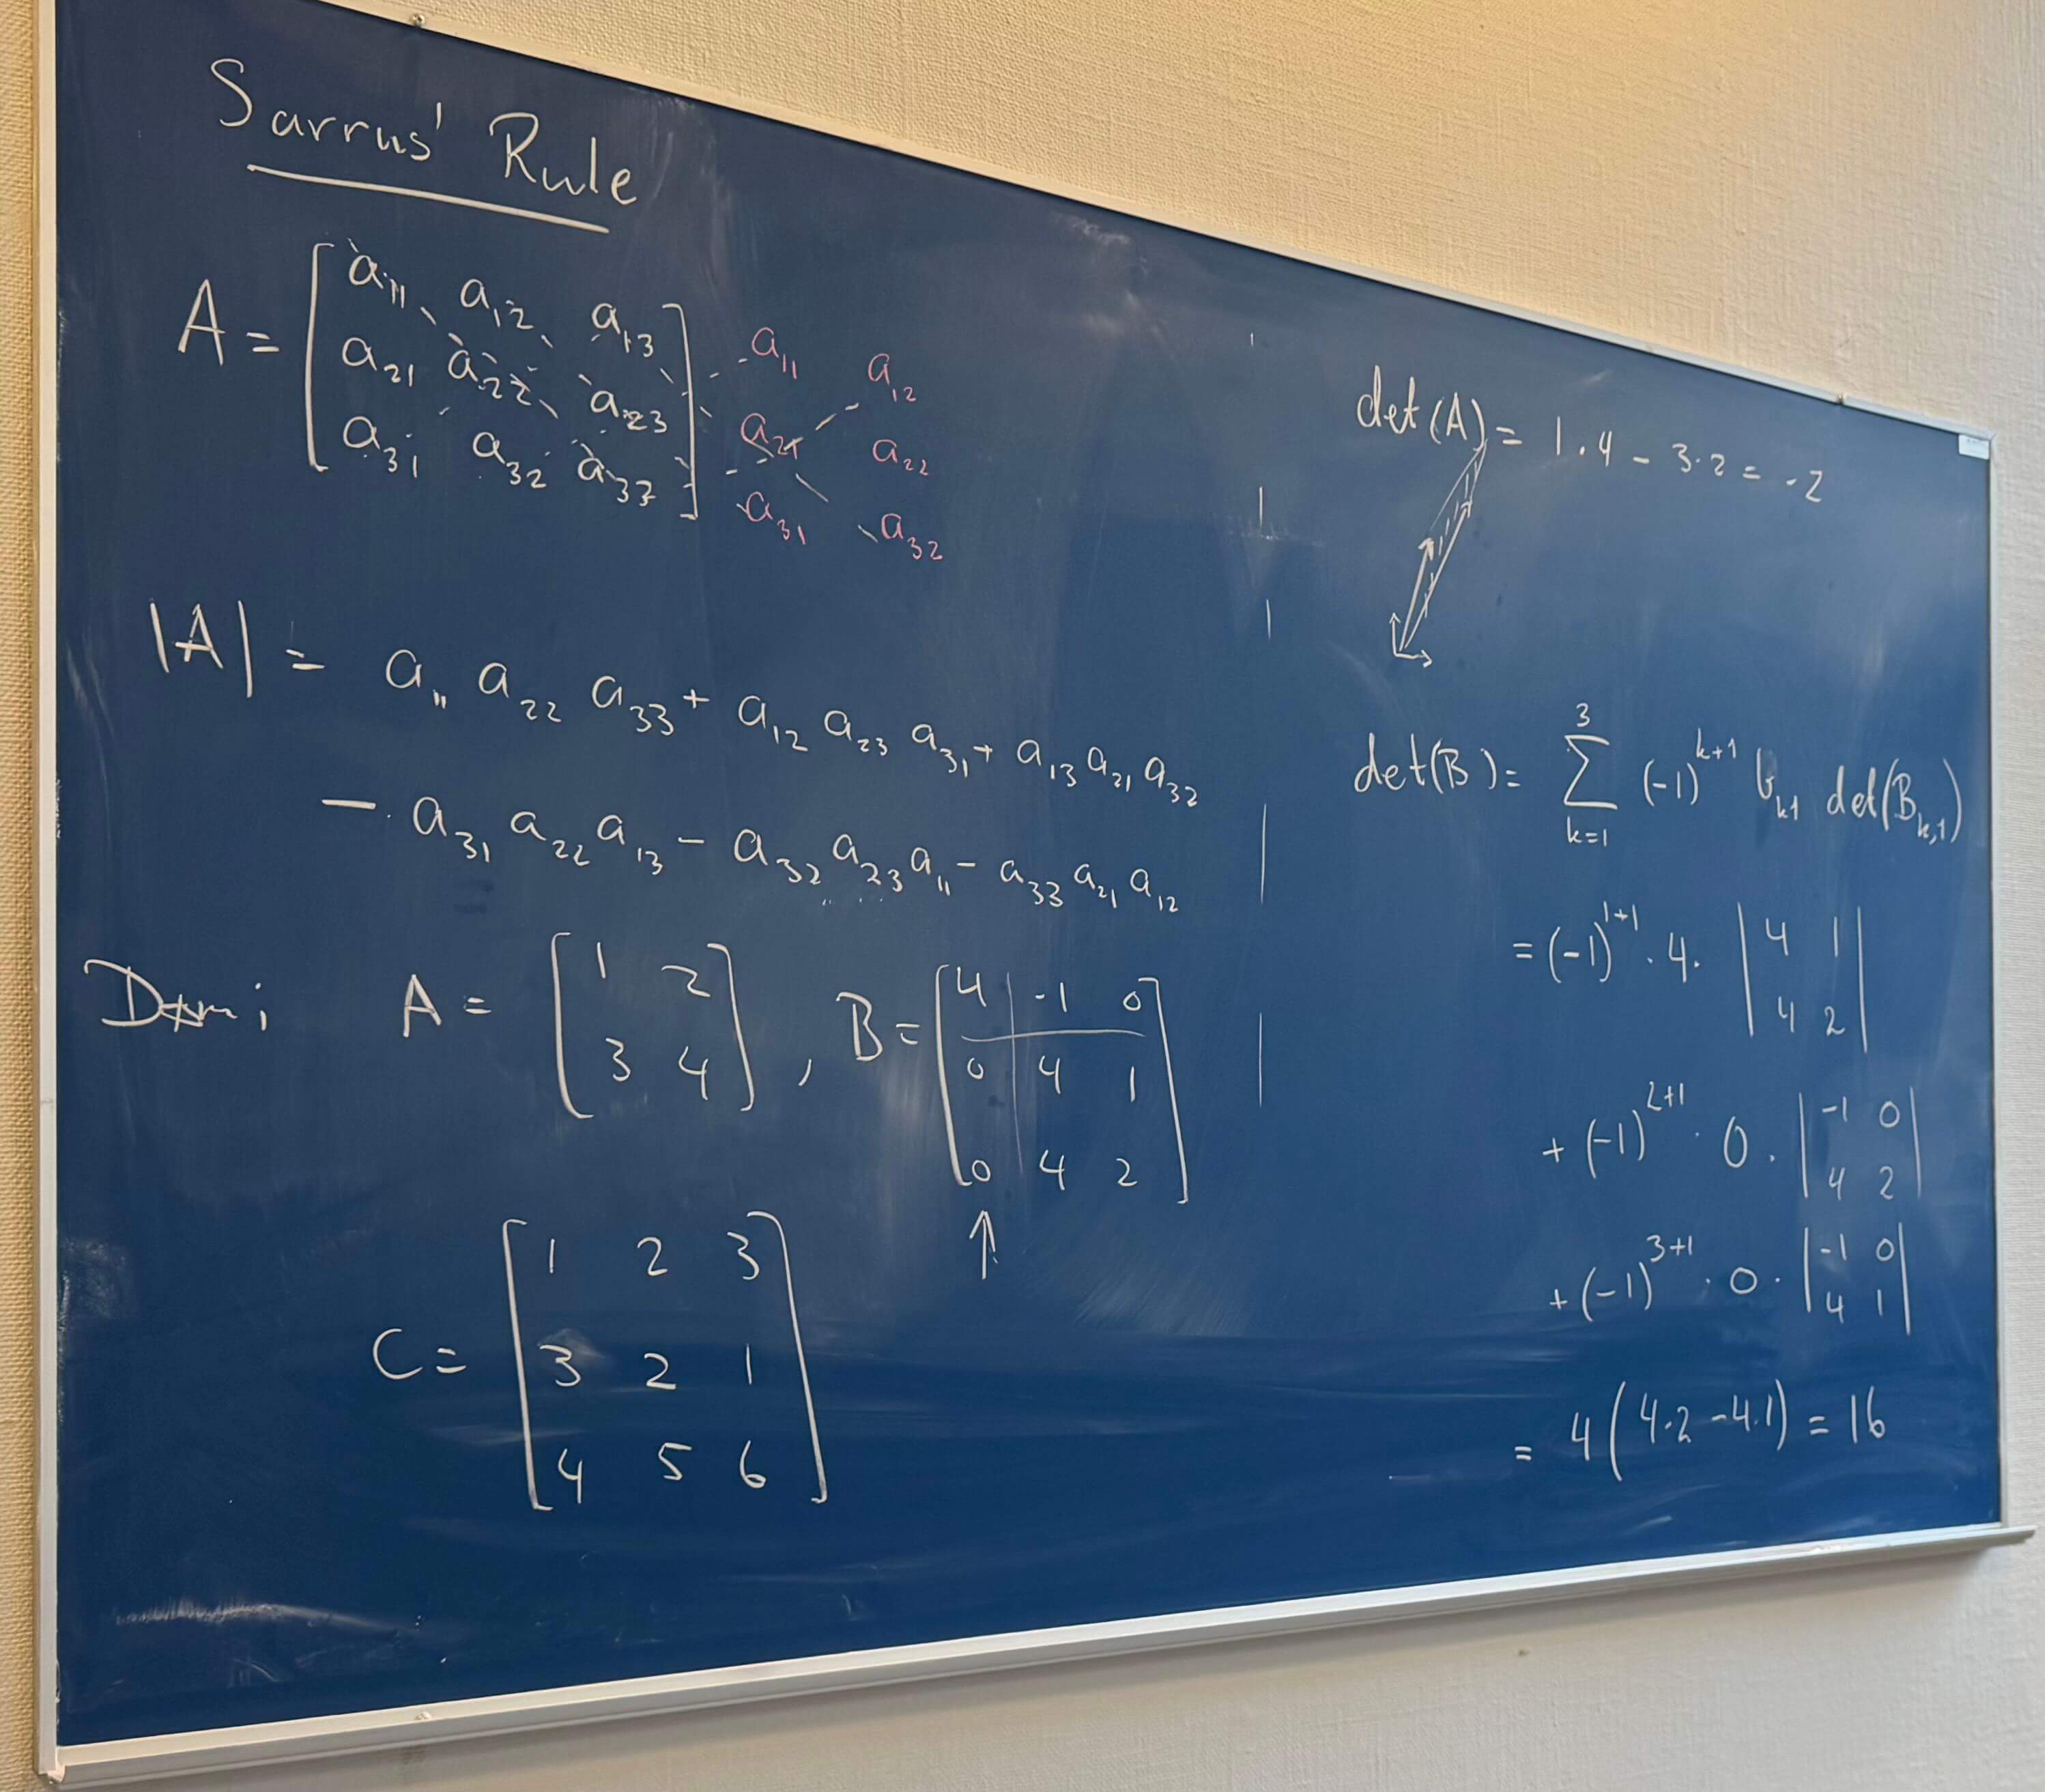 Sarrus' Rule
A = [ a₁₁ a₁₂ a₁₃ ] a₁₁ a₁₂
[ a₂₁ a₂₂ a₂₃ ] a₂₁ a₂₂
[ a₃₁ a₃₂ a₃₃ ] a₃₁ a₃₂
|A| = a₁₁ a₂₂ a₃₃ + a₁₂ a₂₃ a₃₁ + a₁₃ a₂₁ a₃₂
- a₃₁ a₂₂ a₁₃ - a₃₂ a₂₃ a₁₁ - a₃₃ a₂₁ a₁₂
A = [ 1 2 ] , B = [ 4 -1 0 ]
[ 3 4 ] [ 0 4 1 ]
[ 0 4 2 ]
↑
C = [ 1 2 3 ]
[ 3 2 1 ]
[ 4 5 6 ]
det(A) = 1·4 - 3·2 = -2
det(B) = ∑_{k=1}^{3} (-1)^{k+1} b_{k1} det(B_{k,1})
= (-1)^{1+1} · 4 · | 4 1 |
| 4 2 |
+ (-1)^{2+1} · 0 · | -1 0 |
| 4 2 |
+ (-1)^{3+1} · 0 · | -1 0 |
| 4 1 |
= 4(4·2 - 4·1) = 16